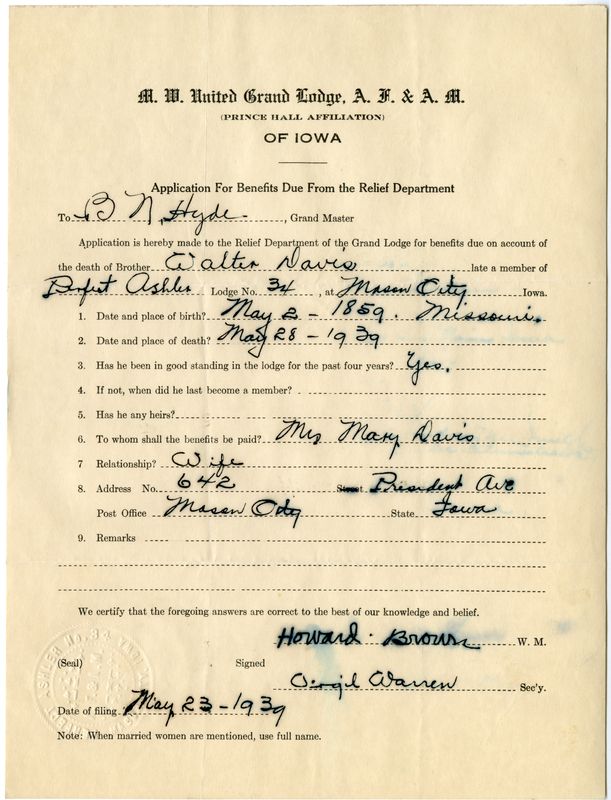 M. W. United Grand Lodge, A. F. & A. M.
(PRINCE HALL AFFILIATION)
OF IOWA
Application For Benefits Due From the Relief Department
To B N, Hyde, Grand Master
Application is hereby made to the Relief Department of the Grand Lodge for benefits due on account of
the death of Brother Walter Davis late a member of
Ashler Lodge No. 34, at Mason City Iowa.
1. Date and place of birth? May 2 - 1859. Missouri.
2. Date and place of death? May 28 - 1939
3. Has he been in good standing in the lodge for the past four years? Yes.
4. If not, when did he last become a member?
5. Has he any heirs?
6. To whom shall the benefits be paid? Mrs Mary Davis
7 Relationship? Wife
8. Address No. 642 Street President Ave
Post Office Mason City State Iowa
9. Remarks
We certify that the foregoing answers are correct to the best of our knowledge and belief.
Howard Brown W. M.
(Seal) Signed
Virgil Warren Sec'y.
Date of filing May 23 - 1939
Note: When married women are mentioned, use full name.